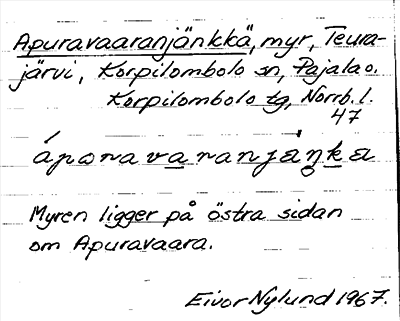 Apuravaaranjänkkä, myr, Teura-
järvi, Korpilombolo sn, Pajala o.
Korpilombolo tg, Norrb. l.
47
áporavaranjäŋka
Myren ligger på östra sidan
om Apuravaara.
Eivor Nylund 1967.